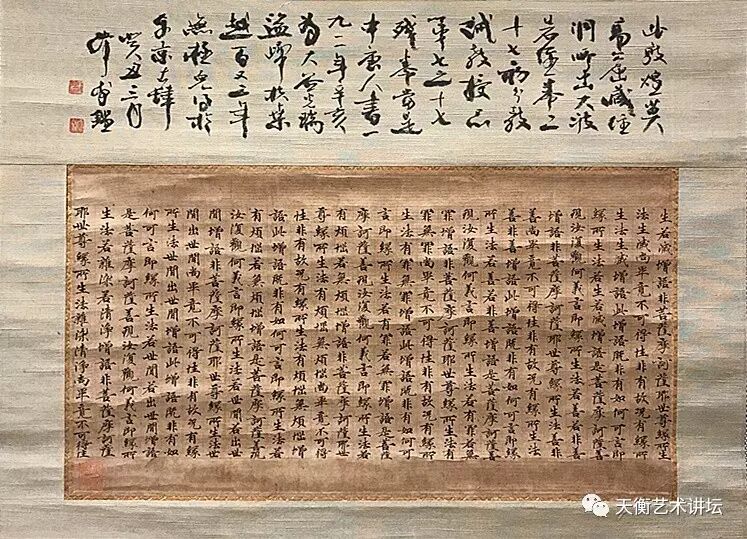 此敦煌莫
高窟藏經
洞所出大波
若經卷二
十七初分教
誡教授品
第七之十七
殘卷當是
中唐人書一
九一一年辛亥
為大谷光瑞
盜歸於
越百又三年
無極得於
東京
三月
生若滅增語非菩薩摩訶薩耶世尊緣所生
法生滅尚畢竟不可得性非有故況有緣所
生法生滅增語此增語既非有如何可言即
緣所生法若生若滅增語是菩薩摩訶薩善
現汝復觀何義言即緣所生法若善若非善
增語非菩薩摩訶薩耶世尊緣所生法善非
善尚畢竟不可得性非有故況有緣所生法
善非善增語此增語既非有如何可言即緣
所生法若善若非善增語是菩薩摩訶薩善
現汝復觀何義言即緣所生法若有罪若無
罪增語非菩薩摩訶薩耶世尊緣所生法有
罪無罪尚畢竟不可得性非有故況有緣所
生法有罪無罪增語此增語既非有如何可
言即緣所生法若有罪若無罪增語是菩薩
摩訶薩善現汝復觀何義言即緣所生法若
有煩惱若無煩惱增語非菩薩摩訶薩耶世
尊緣所生法有煩惱無煩惱尚畢竟不可得
性非有故況有緣所生法有煩惱無煩惱增
語此增語既非有如何可言即緣所生法若
有煩惱若無煩惱增語是菩薩摩訶薩善現
汝復觀何義言即緣所生法若世間若出世
間增語非菩薩摩訶薩耶世尊緣所生法世
間出世間尚畢竟不可得性非有故況有緣
所生法世間出世間增語此增語既非有如
何可言即緣所生法若世間若出世間增語
是菩薩摩訶薩善現汝復觀何義言即緣所
生法若雜染若清淨增語非菩薩摩訶薩
耶世尊緣所生法雜染清淨尚畢竟不可得性
天衡艺术讲坛